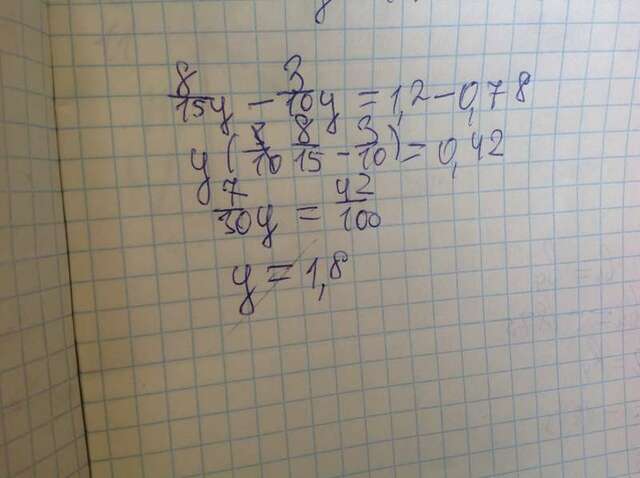 8/15 y - 3/10 y = 1,2 - 0,78
y (8/15 - 3/10) = 0,42
7/30 y = 42/100
y = 1,8